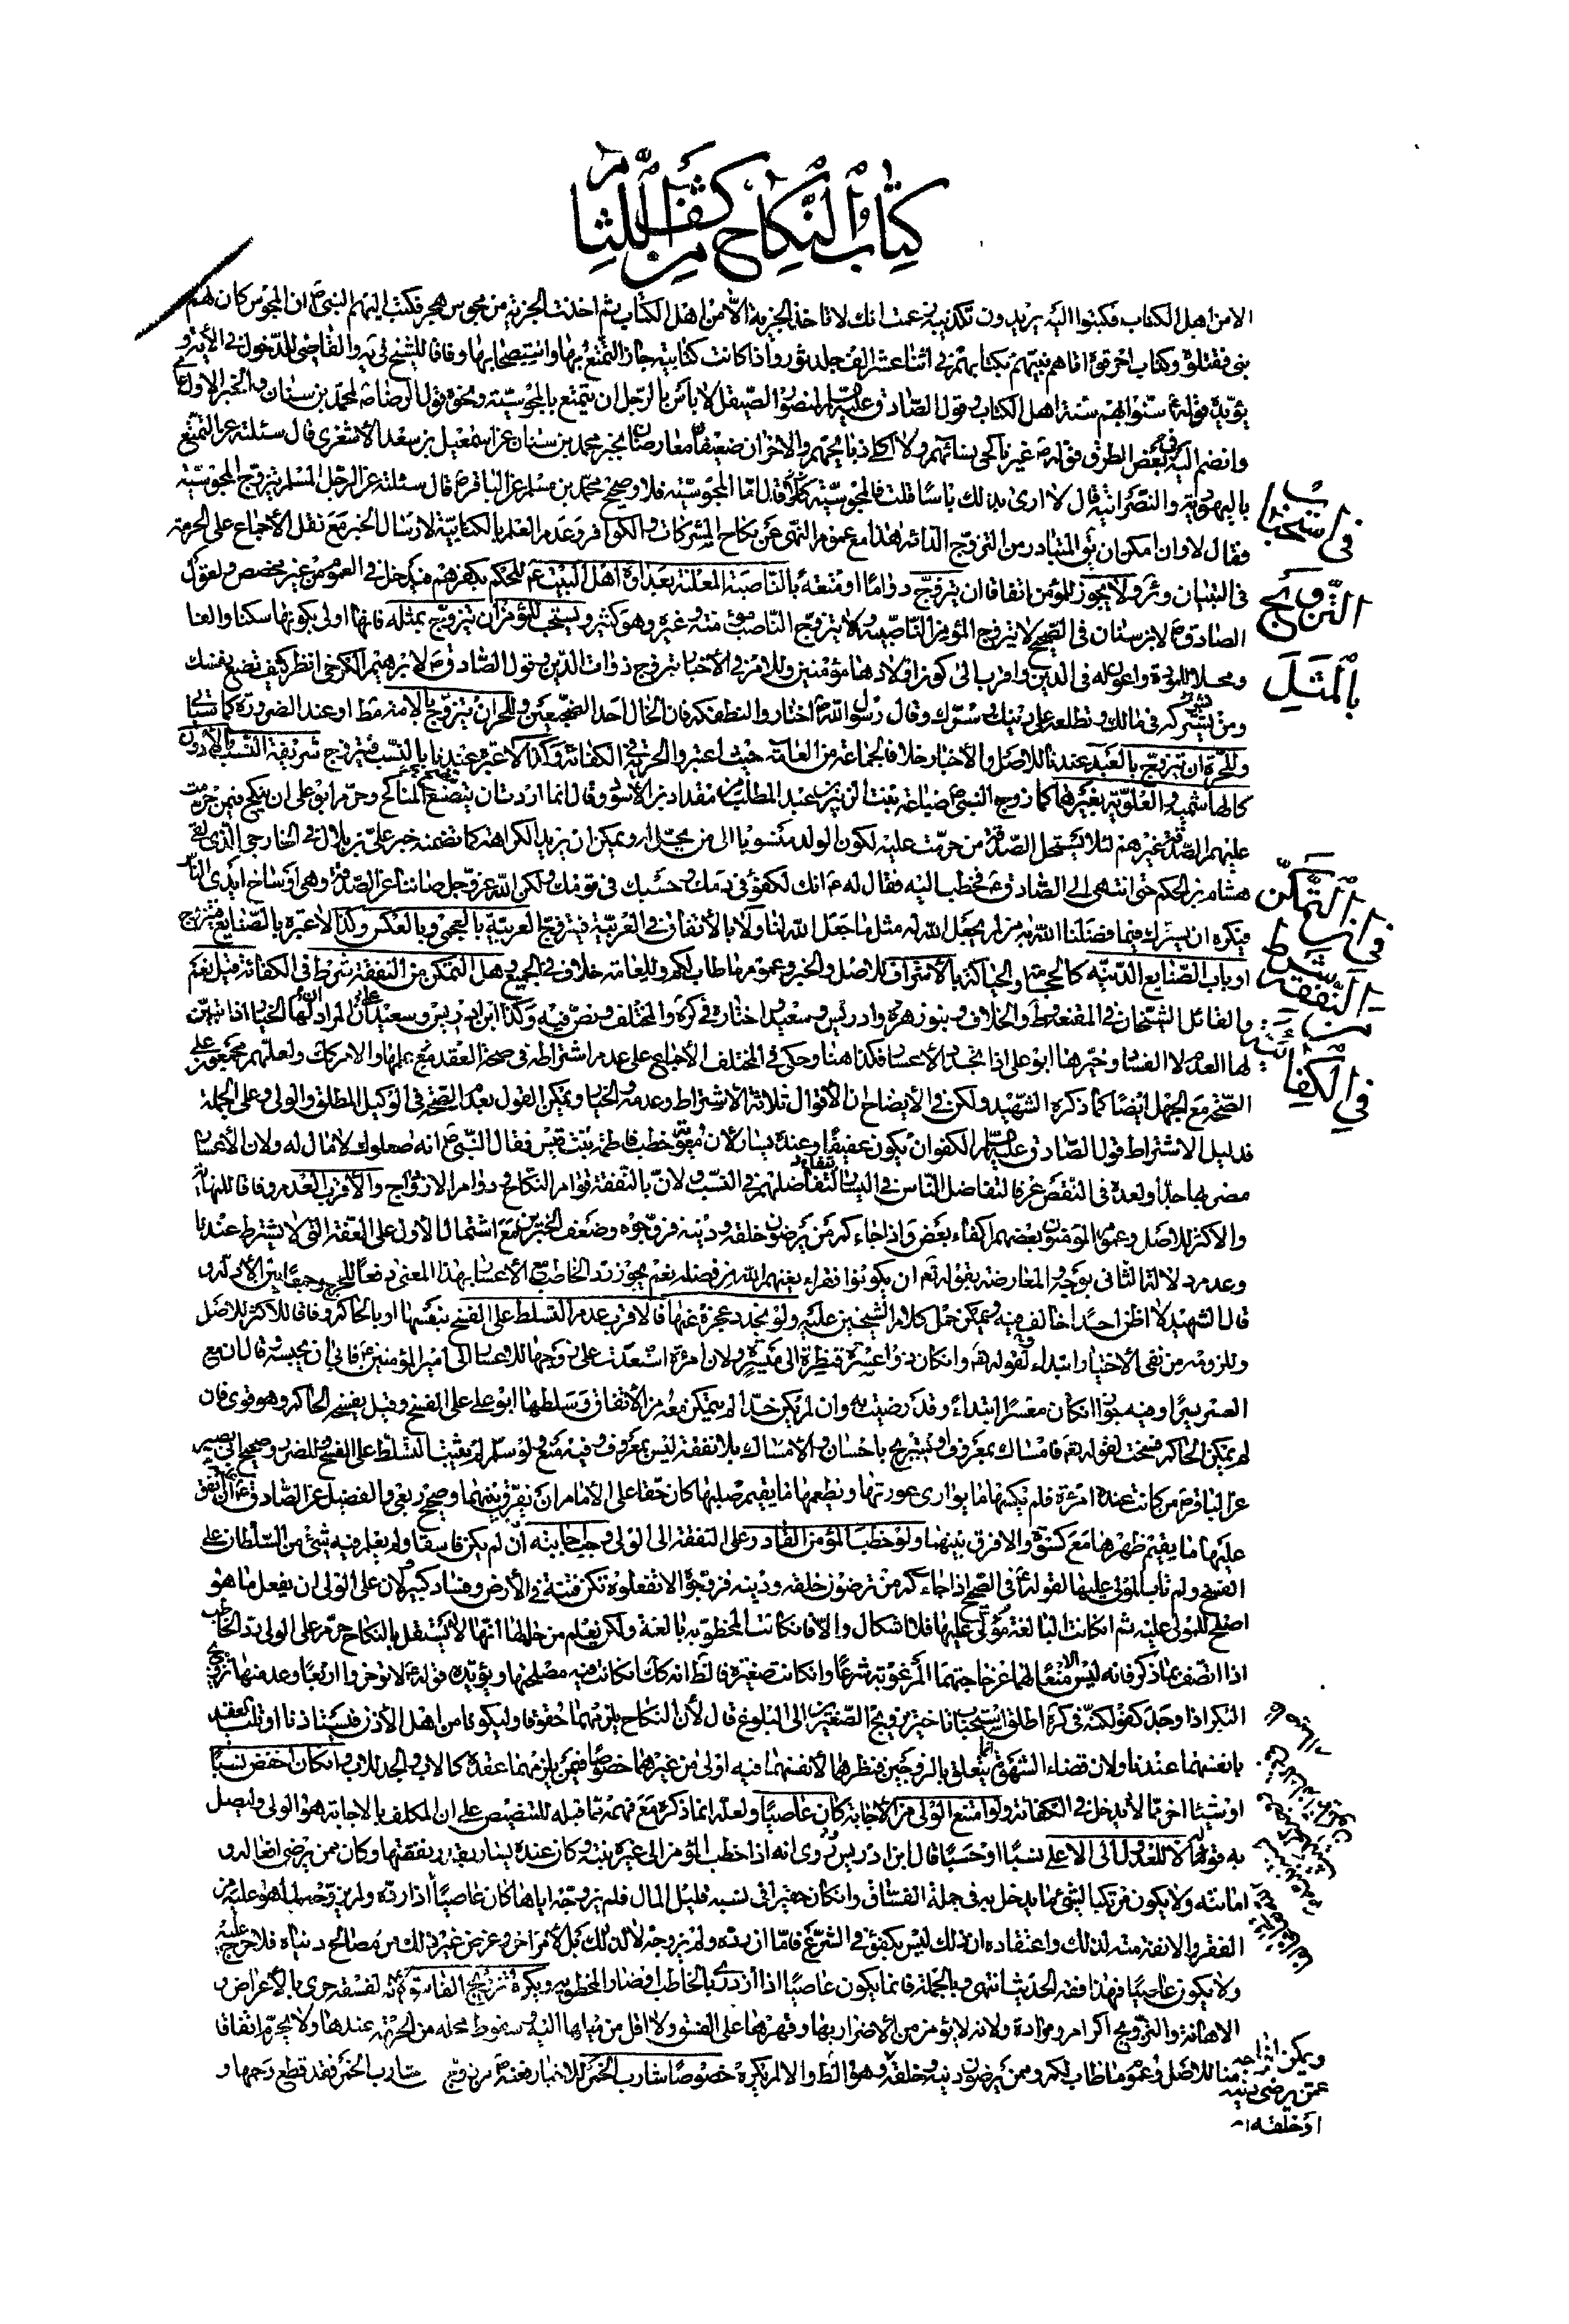 كتاب النكاح من كشف اللثام
الا من اهل الكتاب فكتبوا اليه يريدون تكذيبه زعمت انك لا تاخذ الجزية الا من اهل الكتاب ثم اخذت الجزية من مجوس هجر فكتب اليهم النبي ص ان المجوس كان لهم
نبي فقتلوه وكتاب احرقوه اتاهم نبيهم بكتابهم في اثنا عشر الف جلد ثور واذا كانت كتابية جاز التمتع بها واستصحابها وفاقا للشيخ في يه والقاضي للدخول في الاية و
يؤيده قوله ص سنوا بهم سنة اهل الكتاب وقول الصادق عليه السلام لمنصور الصيقل لا باس بالرجل ان يتمتع بالمجوسية ونحوه قول الرضا ع لمحمد بن سنان والخبر الاول
وانضم اليه في بعض الطرق قوله ص غير ناكحي نسائهم ولا اكلي ذبايحهم والاخران ضعيفان معارضان بخبر محمد بن سنان عن اسمعيل بن سعد الاشعري قال سئلته عن التمتع
باليهودية والنصرانية قال لا ارى بذلك باسا قلت فالمجوسية قال اما المجوسية فلا وصحيح محمد بن مسلم عن الباقر ع قال سئلته عن الرجل المسلم يتزوج المجوسية
فقال لا وان امكن ان يق المتبادر من التزوج الدائم هذا مع عموم النهي عن نكاح المشركات والكوافر وعدم العلم بالكتابية لارسال الخبر مع نقل الاجماع على الحرمة
في التبيان وئر ولا يجوز للمؤمن اتفاقا ان يتزوج دواما او متعة بالناصبة المعلنة بعداوة اهل البيت ع للحكم بكفرهم فيدخل في العموم من غير مخصص ولقول
الصادق ع لابن سنان في الصحيح لا يتزوج المؤمن الناصبية ولا يتزوج الناصب مؤمنة وغيره وهو كثير ويستحب للمؤمن ان يتزوج بمثله فانها اولى بكونها سكنا والفا
ومحلا للمودة واعون له في الدين واقرب الى كون اولادهما مؤمنين وللامر في الاخبار بتزوج ذوات الدين وقول الصادق ع لابرهيم الكرخي انظر كيف تضع نفسك
ومن تشركه في مالك وتطلعه على دينك وسرك وقال رسول الله ص اختاروا لنطفكم فان الخال احد الضجيعين وللحر ان يتزوج بالامة مط او عند الضرورة كما سياتي
وللحرة ان تتزوج بالعبد عندنا للاصل والاخبار خلافا لجماعة من العامة حيث اعتبروا الحرية في الكفائة وكذا لا عبرة عندنا بالنسب فيتزوج شريفة النسب بالادون
كالهاشمية والعلوية بغيرهما كما زوج النبي ص ضباعة بنت الزبير بن عبد المطلب من مقداد بن الاسود وقال انما اردت ان يتضع المناكح وحرم ابو علي ان ينكح فيمن حرمت
عليهم الصدقة غيرهم لئلا يستحل الصدقة من حرمت عليه لكون الولد منسوبا الى من تحل له ويمكن ان يريد الكراهة كما تضمنه خبر علي بن بلال في الخارجي الذي لقي
هشام بن الحكم حتى انتهى الى الصادق ع فخطب اليه فقال له ع انك لكفؤ في دمك وحسبك في قومك ولكن الله عز وجل صاننا عن الصدقة وهي اوساخ ايدي الناس
فنكره ان نشرك فيما فضلنا الله به من لم يجعل الله له مثل ما جعل الله لنا ولا بالاتفاق في العربية فيتزوج العربية بالعجمي وبالعكس وكذا لا عبرة بالصنايع
او باب الصنايع الدنية كالحجامة والحياكة بالاشراف للاصل والخبر وعموم ما طاب لكم وللعامة خلاف في الجميع وهل التمكن من النفقة شرط في الكفائة قيل نعم
والقائل الشيخان في المقنعة وط والخلاف وبنو زهرة وادريس وسعيد واختاره في كره والمختلف ونص فيه وكذا ابن ادريس وسعيد على ان المراد ان لها الخيار اذا تبين
لها العدم لا الفساد وخيرها ابو علي اذا تجدد الاعسار فكذا هنا وحكى في المختلف الاجماع على عدم اشتراطه في صحة العقد مع علمها والامر كذلك ولعلهم مجمعون على
الصحة مع الجهل ايضا كما ذكره الشهيد ولكن في الايضاح ان الاقوال ثلاثة الاشتراط وعدمه والخيار ويمكن القول بعدم الصحة في الوكيل المطلق والولي وعلى الجملة
فدليل الاشتراط قول الصادق عليه السلام الكفو ان يكون عفيفا وعنده يسار ولان معوية خطب فاطمة بنت قيس فقال النبي ص انه صعلوك لا مال له ولان الاعسار
مضر بها جدا ولعده في النقص عرفا لتفاضل الناس في اليسار لتفاضلهم في النسب ولان بالنفقة قوام النكاح ودوام الازدواج والاقرب العدم وفاقا للنهاية
والاكثر للاصل وعموم المؤمنون بعضهم اكفاء بعض واذا جاءكم من ترضون خلقه ودينه فزوجوه وضعف الخبرين مع اشتمال الاول على العفة التي لا تشترط عندنا
وعدم دلالة الثاني بوجه والمعارضة بقوله تع ان يكونوا فقراء يغنهم الله من فضله نعم يجوز رد الخاطب مع الاعسار بهذا المعنى دفعا للحرج وجمعا بين الادلة و
قال الشهيد لا اظن احدا خالف فيه ويمكن حمل كلام الشيخين عليه ولو تجدد عجزه عنها فالاقرب عدم التسلط على الفسخ بنفسها او بالحاكم وفاقا للاكثر للاصل
وللزومه من نفي الاختيار ابتداء ولقوله تع وان كان ذو عسرة فنظرة الى ميسرة ولان امرئة استعدت على زوجها للاعسار الى امير المؤمنين ع فابى ان يحبسه وقال ان مع
العسر يسرا وفيه جواز ان كان معسرا ابتداء وقد رضيت به وان لم يكن حدا لم يتمكن معه من الاتفاق وسلطها ابو علي على الفسخ وقيل يفسخ الحاكم وهو قوي فان
لم يمكن الحاكم فسخت لقوله تع فامساك بمعروف او تسريح باحسان والامساك بلا نفقة ليس بمعروف وفيه منع ولو سلم لم يفيد التسلط على الفسخ وللضرر وصحيح ابي بصير
عن الباقر ع من كانت عنده امرئة فلم يكسها ما يواري عورتها ويطعمها ما يقيم صلبها كان حقا على الامام ان يفرق بينهما وصحيح ربعي والفضيل عن الصادق ع ان انفق
عليها ما يقيم ظهرها مع كسوة والا فرق بينهما ولو خطب المؤمن القادر على النفقة الى الولي وجب اجابته ان لم يكن فاسقا ولم يعلم فيه شيء من السلطان على
الفسخ ولم تاب المولى عليها لقوله ع في الصحيح اذا جاءكم من ترضون خلقه ودينه فزوجوه الا تفعلوه تكن فتنة في الارض وفساد كبير ولان على الولي ان يفعل ما هو
اصلح للمولى عليه ثم ان كانت البالغة مولى عليها فلا اشكال والا فان كانت المخطوبة بالغة ولكن يعلم من حالها انها لا تستقل بالنكاح حرم على الولي رد الخاطب
اذا اتصف بما ذكر فانه ليس الا منعا لهما عن حاجتهما المرغوبة شرعا وان كانت صغيرة فالظ انه كك ان كانت فيه مصلحتها ويؤيده قوله ع لا تؤخروا اربعا وعد منها تزويج
البكر اذا وجد كفو لكنه في كره اطلق استحباب تاخير تزويج الصغيرين الى البلوغ قال لان النكاح يلزمهما حقوقا وليكونا من اهل الاذن فليستاذنا او
بانفسهما عندنا ولان قضاء الشهوة انما يتعلق بالزوجين فنظرهما لانفسهما فيه اولى من غيرهما خصوصا فيمن يلزمهما عقده كالاب والجد للاب وان كان اخفض نسبا
او شيئا اخر مما لا يدخل في الكفائة ولو امتنع الولي من الاجابة كان عاصيا ولعله انما ذكره مع فهمه مما قبله للتنصيص على ان المكلف بالاجابة هو الولي وليصل
به قوله الا للعدول الى الاعلى نسبا او حسبا قال ابن ادريس وروى انه اذا خطب المؤمن الى غيره بنته وكان عنده يسار بقدر نفقتها وكان ممن يرضى افعاله و
امانته ولا يكون مرتكبا لشيء مما يدخل به في جملة الفساق وان كان حقيرا في نسبه قليل المال فلم يزوجه اياها كان عاصيا اذا رده ولم يزوجه لما هو عليه من
الفقر والانفة منه لذلك واعتقاده ان ذلك ليس بكفؤ في الشرع فاما ان رده ولم يزوجه لا لذلك بل لامر اخر وغرض غير ذلك من مصالح دنياه فلا حرج عليه
ولا يكون عاصيا فهذا فقه الحديث انتهى وبالجملة فانما يكون عاصيا اذا ازدرى بالخاطب او ضار المخطوبة ويكره تزويج الفاسق لانه لفسقه حرى بالاعراض و
الاهانة والتزويج اكرام وموادة ولانه لا يؤمن من الاضرار بها وقهرها على الفسق ولا اقل من ميلها اليه وسقوط محله من الحرمة عندها ولا يحرم اتفاقا
منا للاصل وعموم ما طاب لكم ومن ترضون دينه وخلقه وهو الظ والا لم يكره خصوصا شارب الخمر للاخبار فعنه ص من زوج شارب الخمر فقد قطع رحمها و
في استحباب
التزويج
بالمثل
في ان التمكن
من النفقة
شرط
في الكفائة
ويمكن اخراجه
عمن يرضى دينه
او خلقه